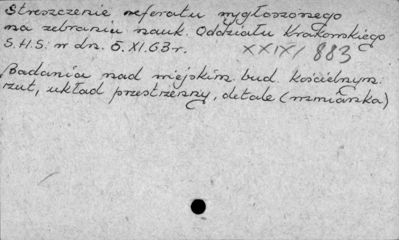 Streszczenie referatu wygłoszonego
na zebraniu nauk. Oddziału Krakowskiego
S.H.S. w dn. 5.XI.63 r. XXIX/883
Badania nad wiejskim bud. kościelnym.
rzut, układ przestrzenny, detale (wzmianka)